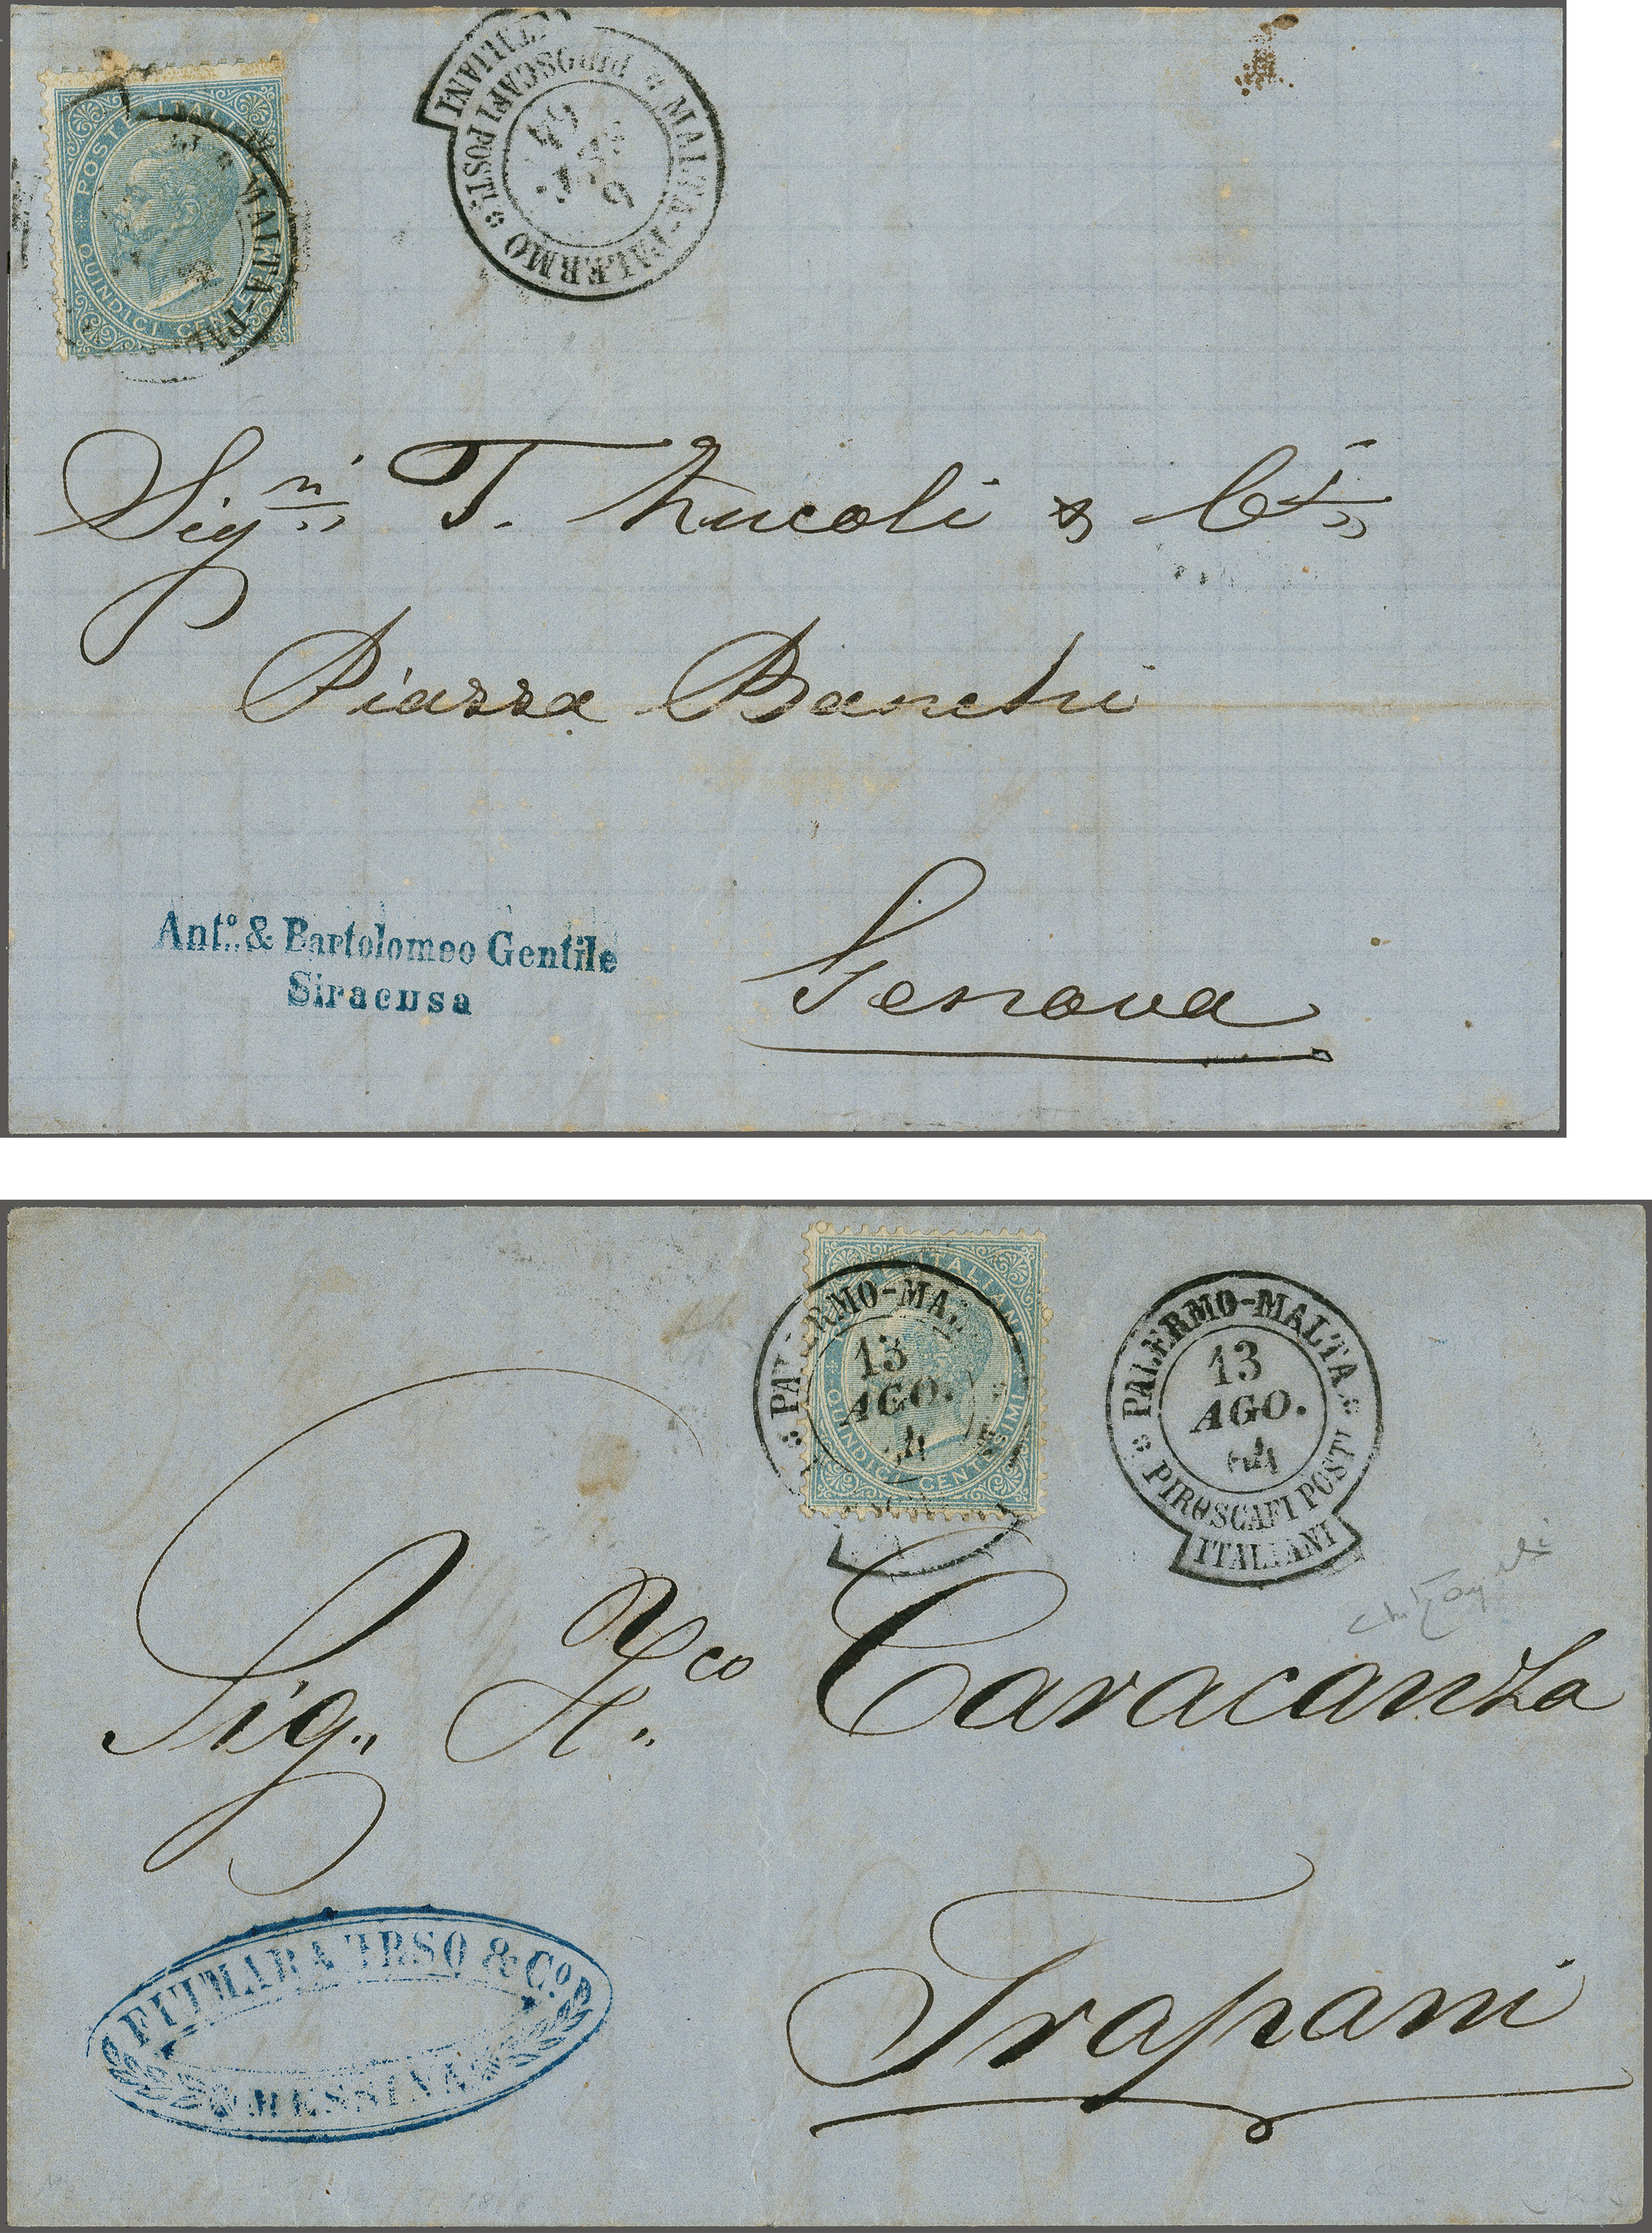 POSTE ITALIANE
QUINDICI CENTESIMI
MALTA-PAL
MALTA-PALERMO
PIROSCAFI POSTI
ITALIANI
64
9
Sig.ni T. Nucoli & C.
Piazza Banchi
Genova
Ant.o & Bartolomeo Gentile
Siracusa
ITALIAN
QUINDICI CENTESIMI
PALERMO-MA
13
AGO.
64
PALERMO-MALTA
13
AGO.
64
PIROSCAFI POSTI
ITALIANI
Sig.
co Caracanza
Trapani
FIUMARA TRSO & Co.
MESSINA